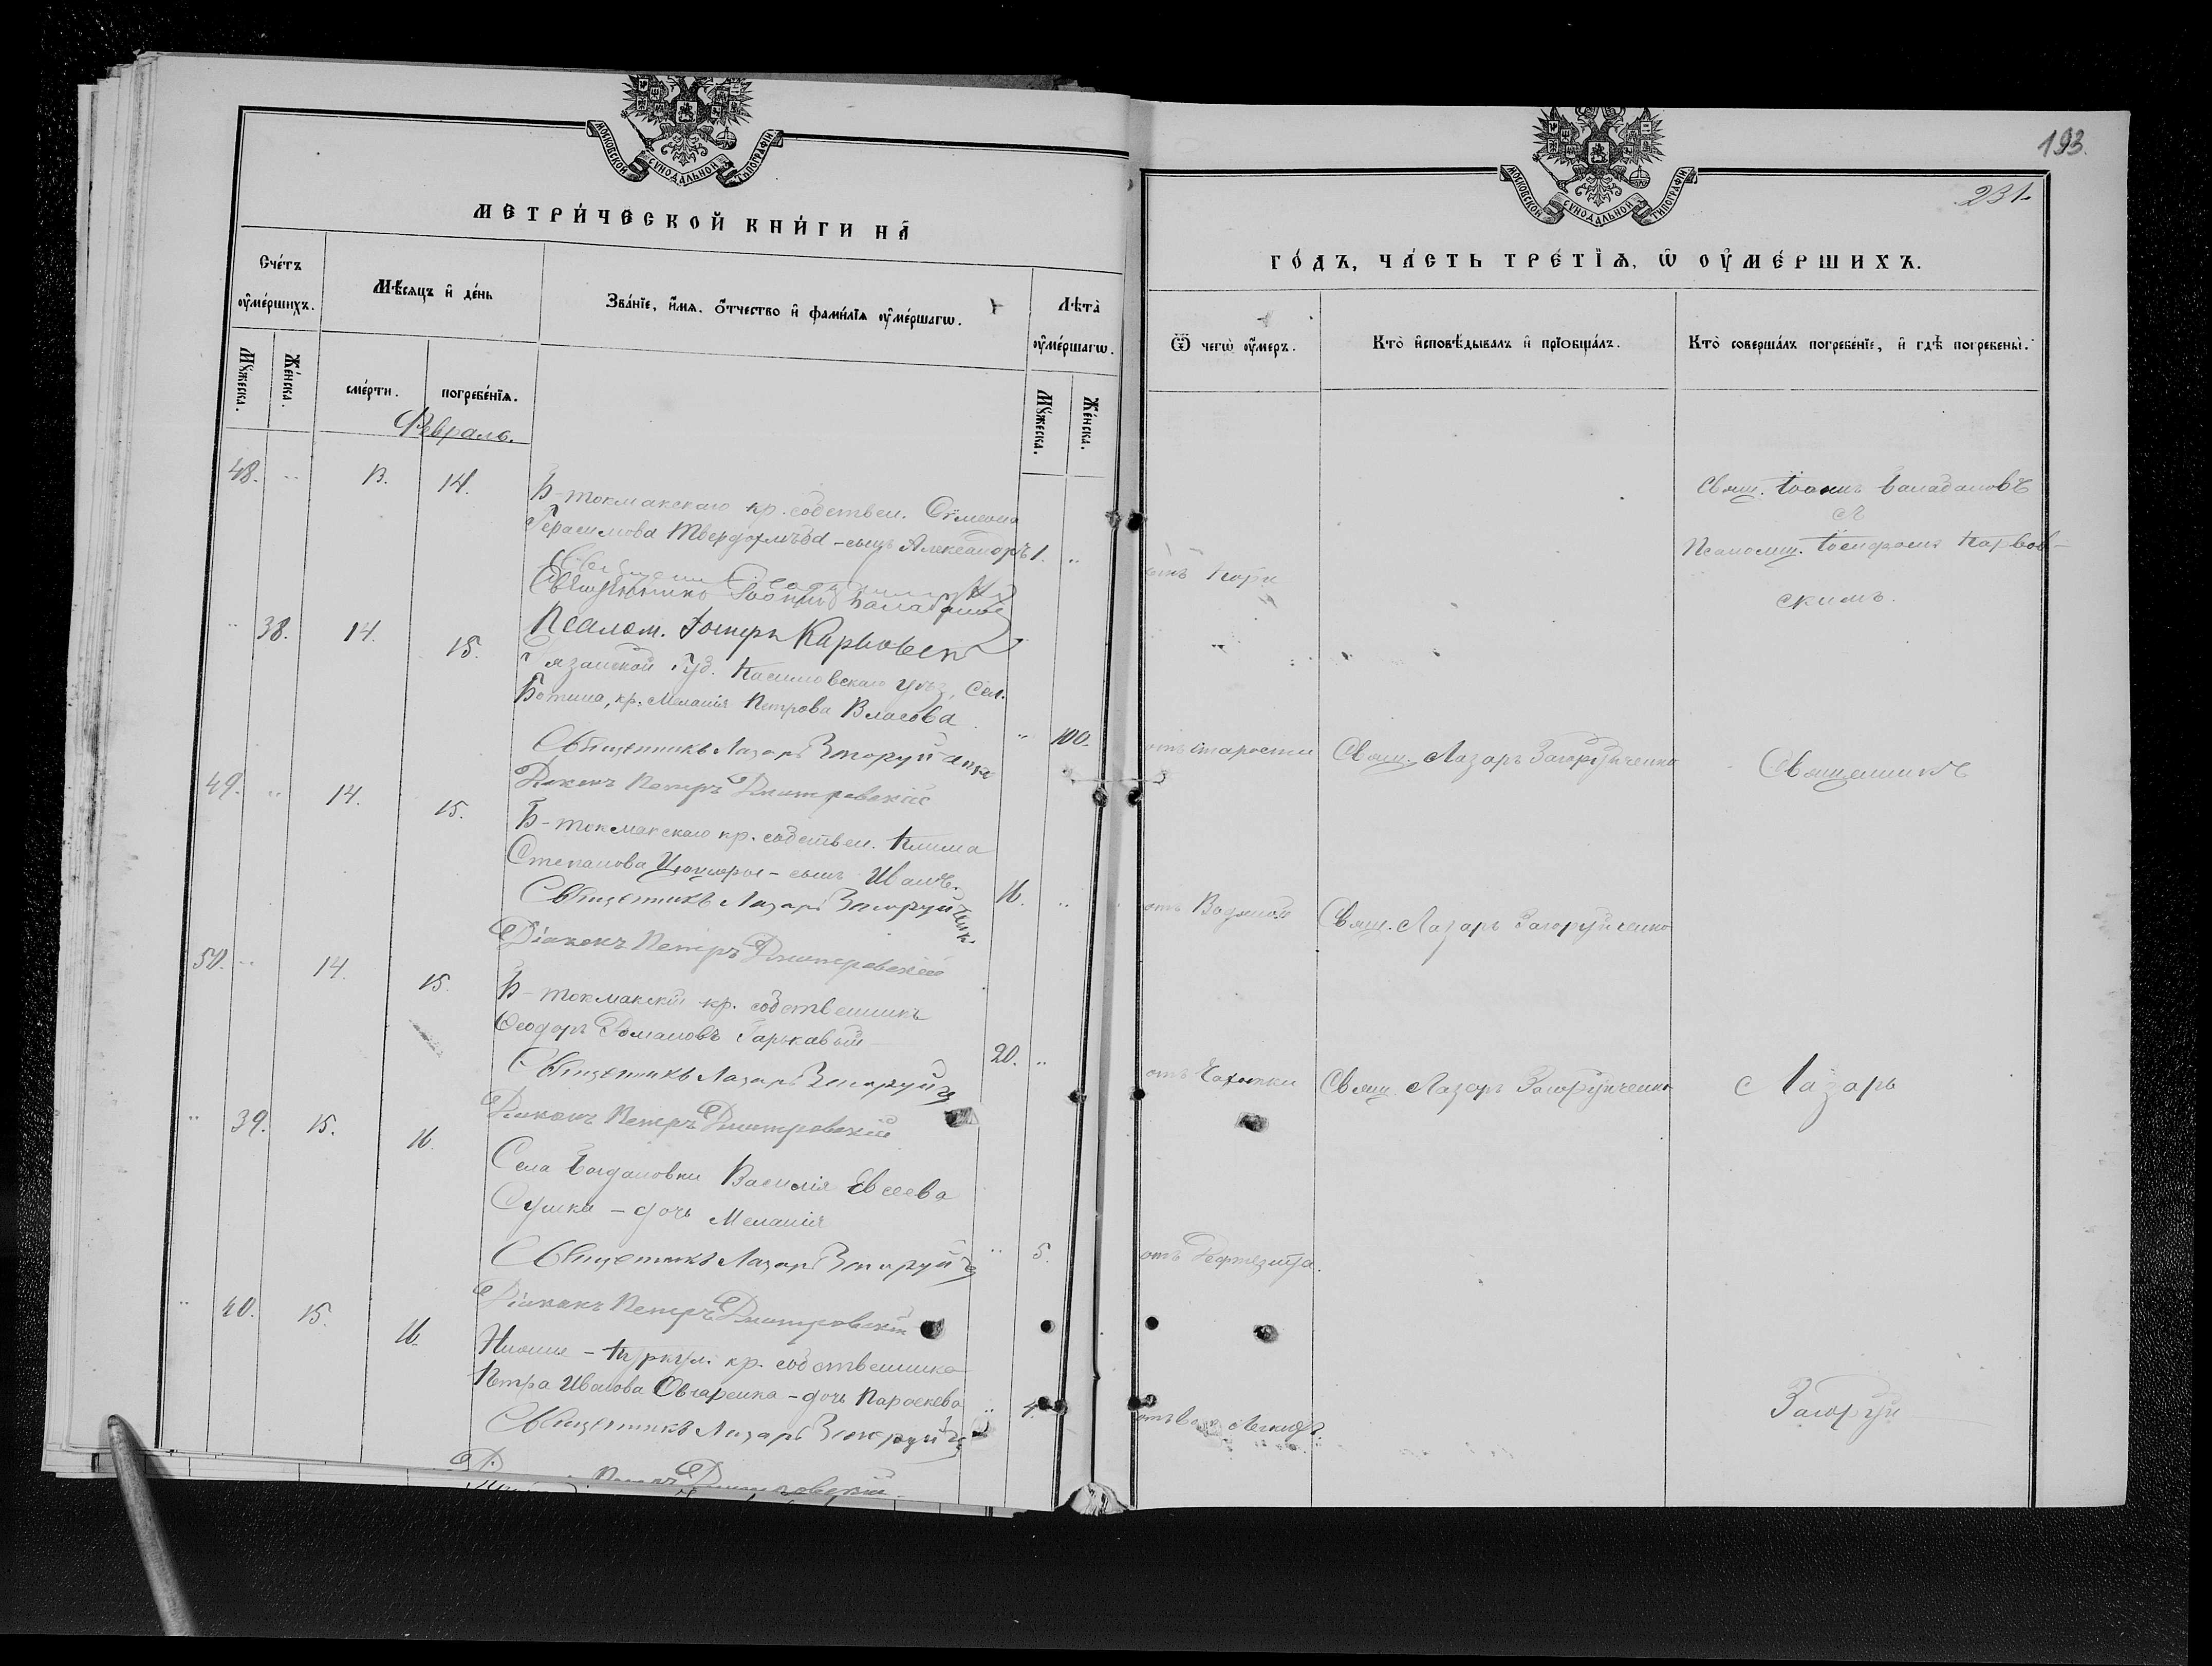 МОСКОВСКОЙ СѴНОДАЛЬНОЙ ТИПОГРАФІИ
МЕТРИ́ЧЕСКОЙ КНИ́ГИ НА̀
Сче́тъ ᲂу҆ме́ршихъ.
Мѣ́сяцъ и҆ де́нь
Зва́нїе, и҆́мѧ, ѻ҆́тчество и҆ фами́лїѧ ᲂу҆ме́ршагѡ.
Лѣ́та ᲂу҆ме́ршагѡ.
Мꙋ́жеска.
Же́нска.
сме́рти.
погребе́нїѧ.
Мꙋ́жеска.
Же́нска.
Февраль.
48. " 13. 14.
Б-токмакскаго кр. собствен. Симеона
Герасимова Твердохлѣба - сынъ Александръ 1. "
Священникъ Іоаннъ Баладановъ
Псалом. Іосифъ Карповск
" 38. 14. 15.
Рязанской Губ. Касимовскаго уѣз. Сел.
Ботина, кр. Меланія Петрова Власова
" 100.
Священникъ Лазарь Загоруйченко
Діаконъ Петръ Дмитровскій
49. " 14. 15.
Б-токмакскаго кр. собствен. Клима
Степанова - сынъ Иванъ.
16. "
Священникъ Лазарь Загоруйченк
Діаконъ Петръ Дмитровскій
50. " 14. 15.
Б-токмакскій кр. собственникъ
Ѳеодоръ Романовъ Гарькавый
20. "
Священникъ Лазарь Загоруйч
Діаконъ Петръ Дмитровскій
" 39. 15. 16.
Села Богдановки Василія Евсеева
Сушка - дочь Меланія
" 5.
Священникъ Лазарь Загоруйч
Діаконъ Петръ Дмитровскій
" 40. 15. 16.
Нижне - Куркул. кр. собственника
Петра Иванова Овчаренка - дочь Параскева
" 4.
Священникъ Лазарь Загоруйч
Петръ Дмитровскій
МОСКОВСКОЙ СѴНОДАЛЬНОЙ ТИПОГРАФІИ
193.
231.
ГО́ДЪ, ЧА́СТЬ ТРЕ́ТЇѦ, Ѡ҆ ОУ҆МЕ́РШИХЪ.
Ѿ чегѡ̀ ᲂу҆́меръ.
Кто̀ и҆сповѣ́дывалъ и҆ прїѡбща́лъ.
Кто̀ соверша́лъ погребе́нїе, и҆ гдѣ̀ погребены̀.
Свящ. Іоаннъ Баладановъ
съ
Псаломщ. Іосифомъ Карпов-
скимъ.
отъ Кори
отъ старости
Свящ. Лазарь Загоруйченко
Священникъ
отъ Водяной
Свящ. Лазарь Загоруйченко
отъ Чахотки
Свящ. Лазарь Загоруйченко
Лазарь
отъ Дифтерита.
отъ
Загоруй